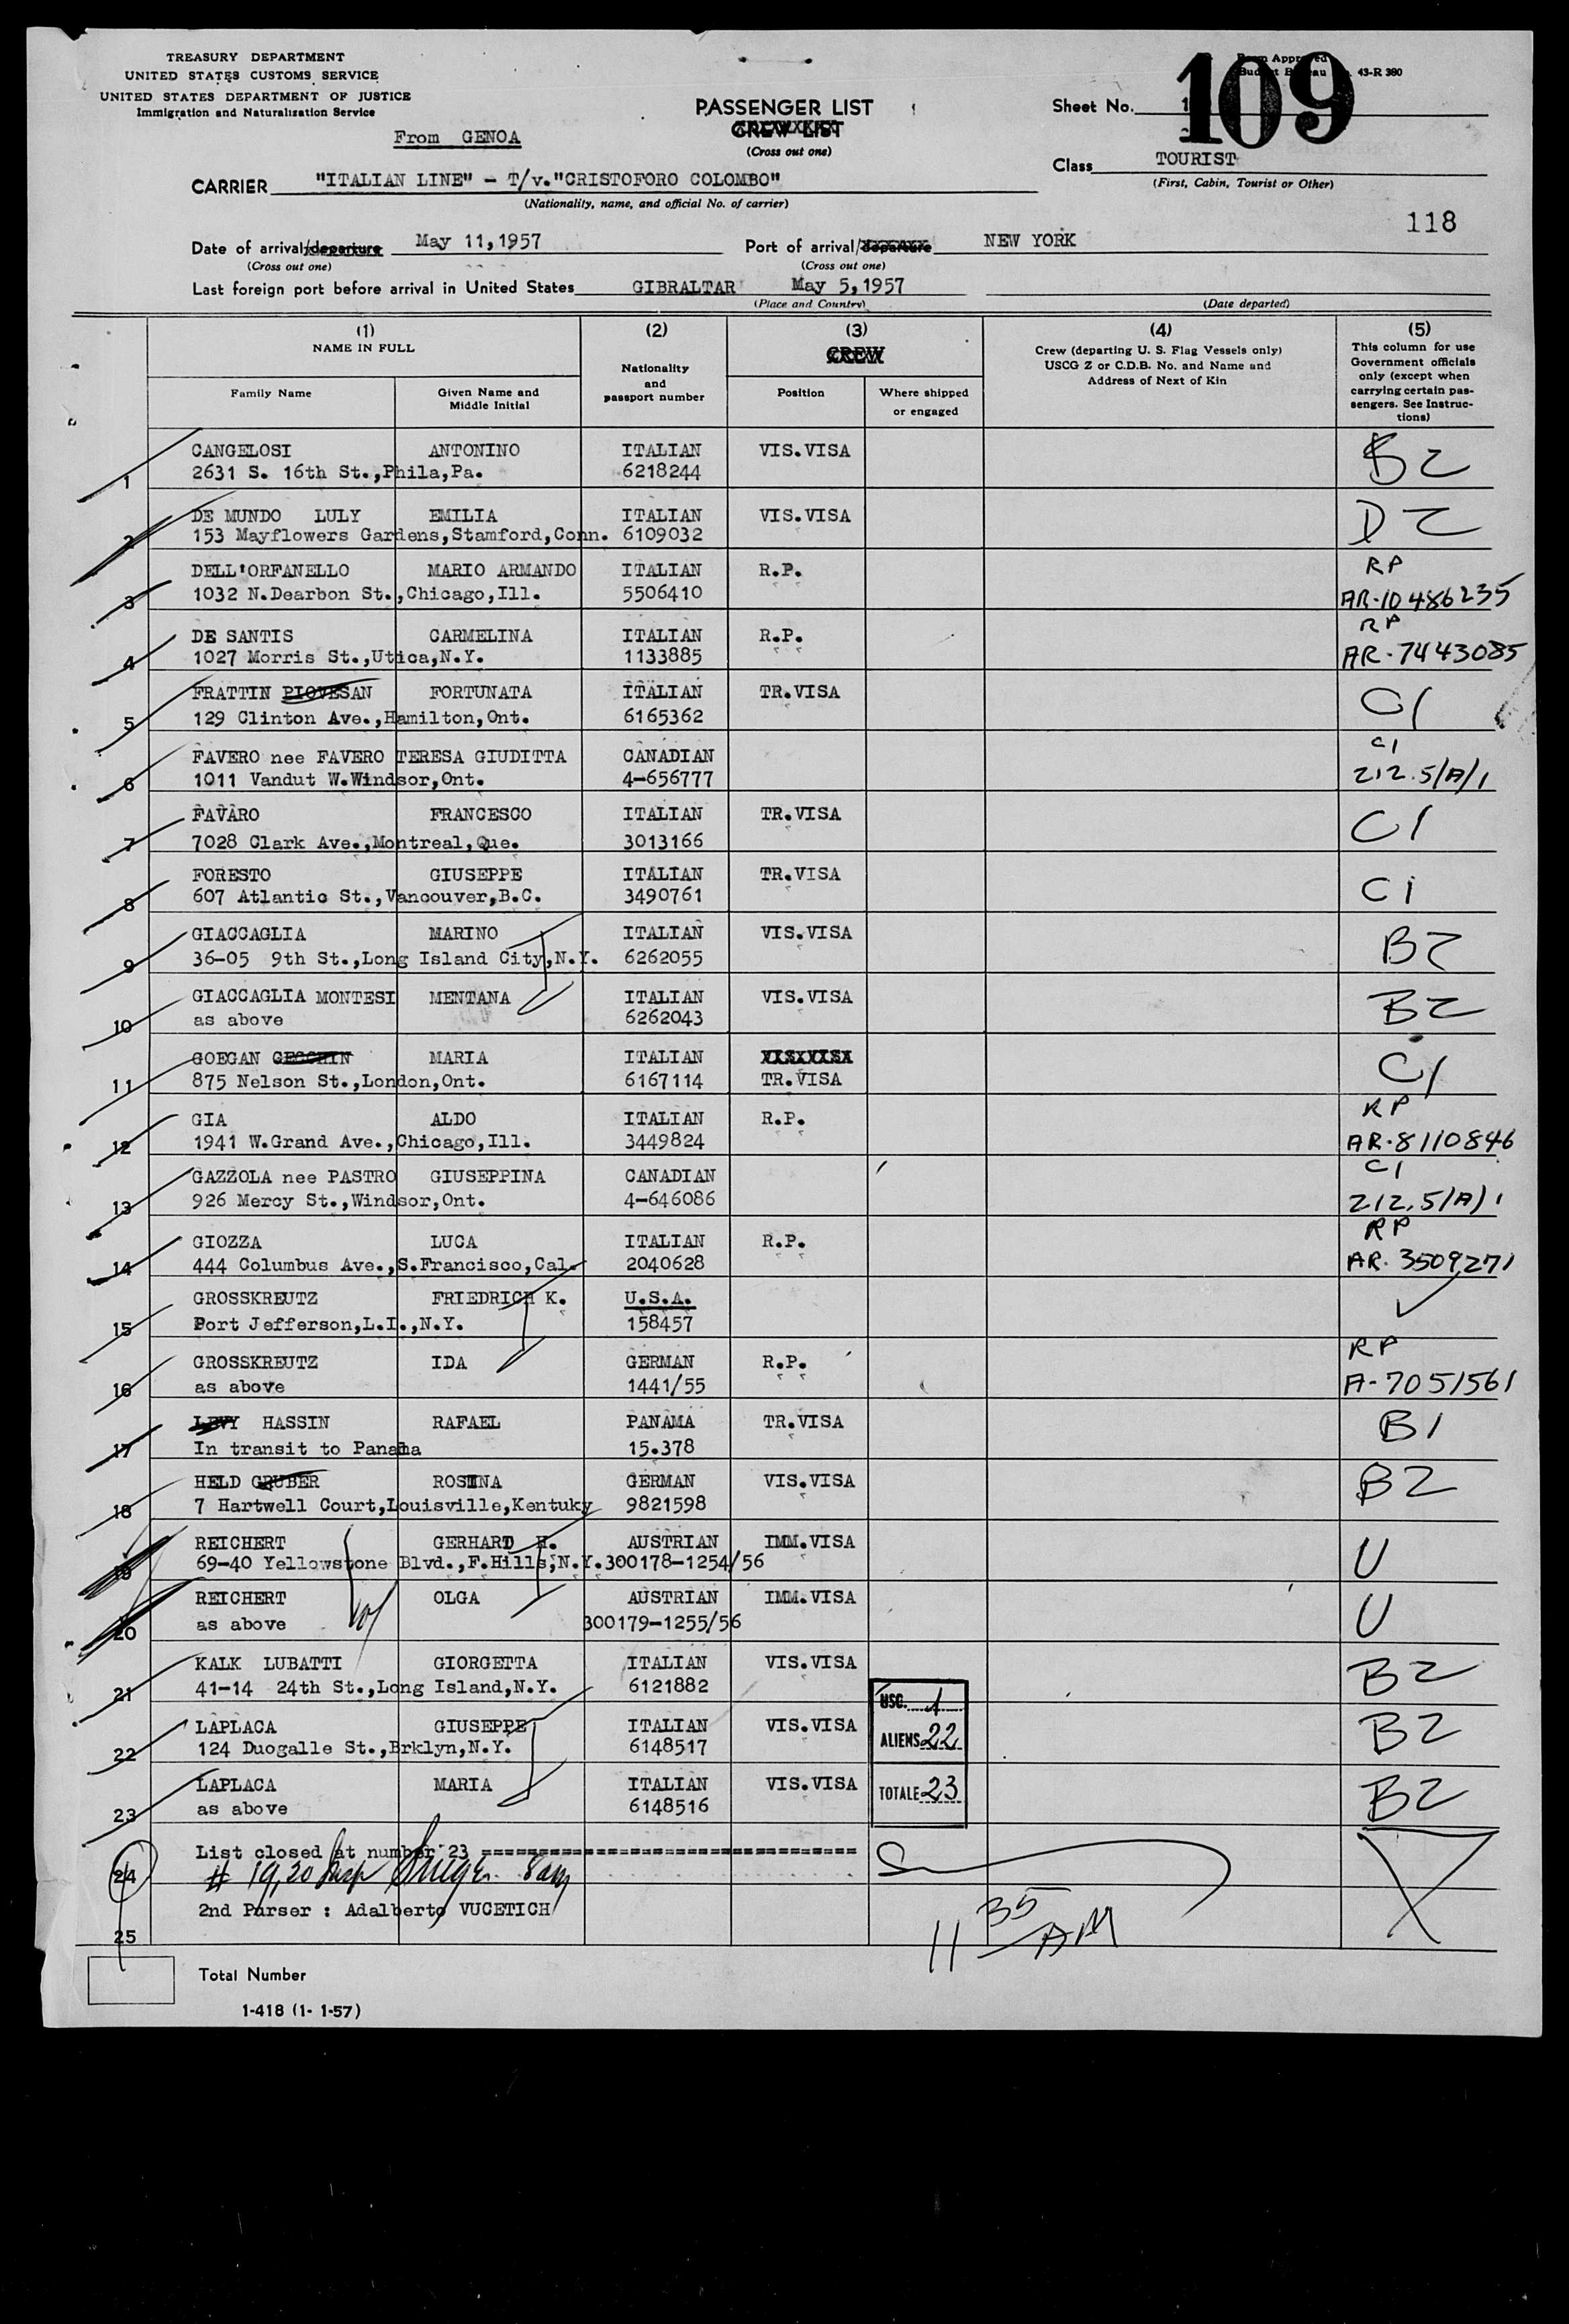 TREASURY DEPARTMENT
UNITED STATES CUSTOMS SERVICE
UNITED STATES DEPARTMENT OF JUSTICE
Immigration and Naturalization Service
From GENOA
PASSENGER LIST
CREW LIST
(Cross out one)
Form Approved
Budget Bureau 43-R 380
Sheet No.
109
Class TOURIST
(First, Cabin, Tourist or Other)
CARRIER "ITALIAN LINE" - T/v."CRISTOFORO COLOMBO"
(Nationality, name, and official No. of carrier)
118
Date of arrival/departure May 11,1957 Port of arrival/departure NEW YORK
(Cross out one) (Cross out one)
Last foreign port before arrival in United States GIBRALTAR May 5,1957
(Place and Country) (Date departed)
(1) NAME IN FULL
Family Name
Given Name and Middle Initial
(2) Nationality and passport number
(3) CREW
Position
Where shipped or engaged
(4) Crew (departing U. S. Flag Vessels only) USCG Z or C.D.B. No. and Name and Address of Next of Kin
(5) This column for use Government officials only (except when carrying certain passengers. See Instructions)
1 CANGELOSI ANTONINO ITALIAN VIS.VISA B2
2631 S. 16th St.,Phila,Pa. 6218244
2 DE MUNDO LULY EMILIA ITALIAN VIS.VISA
153 Mayflowers Gardens,Stamford,Conn. 6109032
3 DELL'ORFANELLO MARIO ARMANDO ITALIAN R.P. RP
1032 N.Dearbon St.,Chicago,Ill. 5506410 AR-10486235
4 DE SANTIS CARMELINA ITALIAN R.P. RP
1027 Morris St.,Utica,N.Y. 1133885 AR-7443085
5 FRATTIN PIOVESAN FORTUNATA ITALIAN TR.VISA C1
129 Clinton Ave.,Hamilton,Ont. 6165362
6 FAVERO nee FAVERO TERESA GIUDITTA CANADIAN C1
1011 Vandut W.Windsor,Ont. 4-656777 212.5/A/1
7 FAVARO FRANCESCO ITALIAN TR.VISA C1
7028 Clark Ave.,Montreal,Que. 3013166
8 FORESTO GIUSEPPE ITALIAN TR.VISA C1
607 Atlantic St.,Vancouver,B.C. 3490761
9 GIACCAGLIA MARINO ITALIAN VIS.VISA B2
36-05 9th St.,Long Island City,N.Y. 6262055
10 GIACCAGLIA MONTESI MENTANA ITALIAN VIS.VISA B2
as above 6262043
11 GOEGAN GECCHIN MARIA ITALIAN VIS.VISA C1
875 Nelson St.,London,Ont. 6167114 TR.VISA
12 GIA ALDO ITALIAN R.P. RP
1941 W.Grand Ave.,Chicago,Ill. 3449824 AR-8110846
13 GAZZOLA nee PASTRO GIUSEPPINA CANADIAN C1
926 Mercy St.,Windsor,Ont. 4-646086 212.5/A/1
14 GIOZZA LUCA ITALIAN R.P. RP
444 Columbus Ave.,S.Francisco,Cal. 2040628 AR-3509271
15 GROSSKREUTZ FRIEDRICH K. U.S.A.
Port Jefferson,L.I.,N.Y. 158457
16 GROSSKREUTZ IDA GERMAN R.P. RP
as above 1441/55 A-7051561
17 LEVY HASSIN RAFAEL PANAMA TR.VISA B1
In transit to Panama 15.378
18 HELD GRUBER ROSINA GERMAN VIS.VISA B2
7 Hartwell Court,Louisville,Kentuky 9821598
19 REICHERT GERHARD H. AUSTRIAN IMM.VISA U
69-40 Yellowstone Blvd.,F.Hills,N.Y. 300178-1254/56
20 REICHERT OLGA AUSTRIAN IMM.VISA U
as above 300179-1255/56
21 KALK LUBATTI GIORGETTA ITALIAN VIS.VISA B2
41-14 24th St.,Long Island,N.Y. 6121882
22 LAPLACA GIUSEPPE ITALIAN VIS.VISA B2
124 Duogalle St.,Brklyn,N.Y. 6148517
23 LAPLACA MARIA ITALIAN VIS.VISA B2
as above 6148516
USC. 1
ALIENS 22
TOTALE 23
List closed at number 23 ====================================
24 # 19,20
2nd Purser : Adalberto VUCETICH
25
11 35 AM
Total Number
1-418 (1- 1-57)